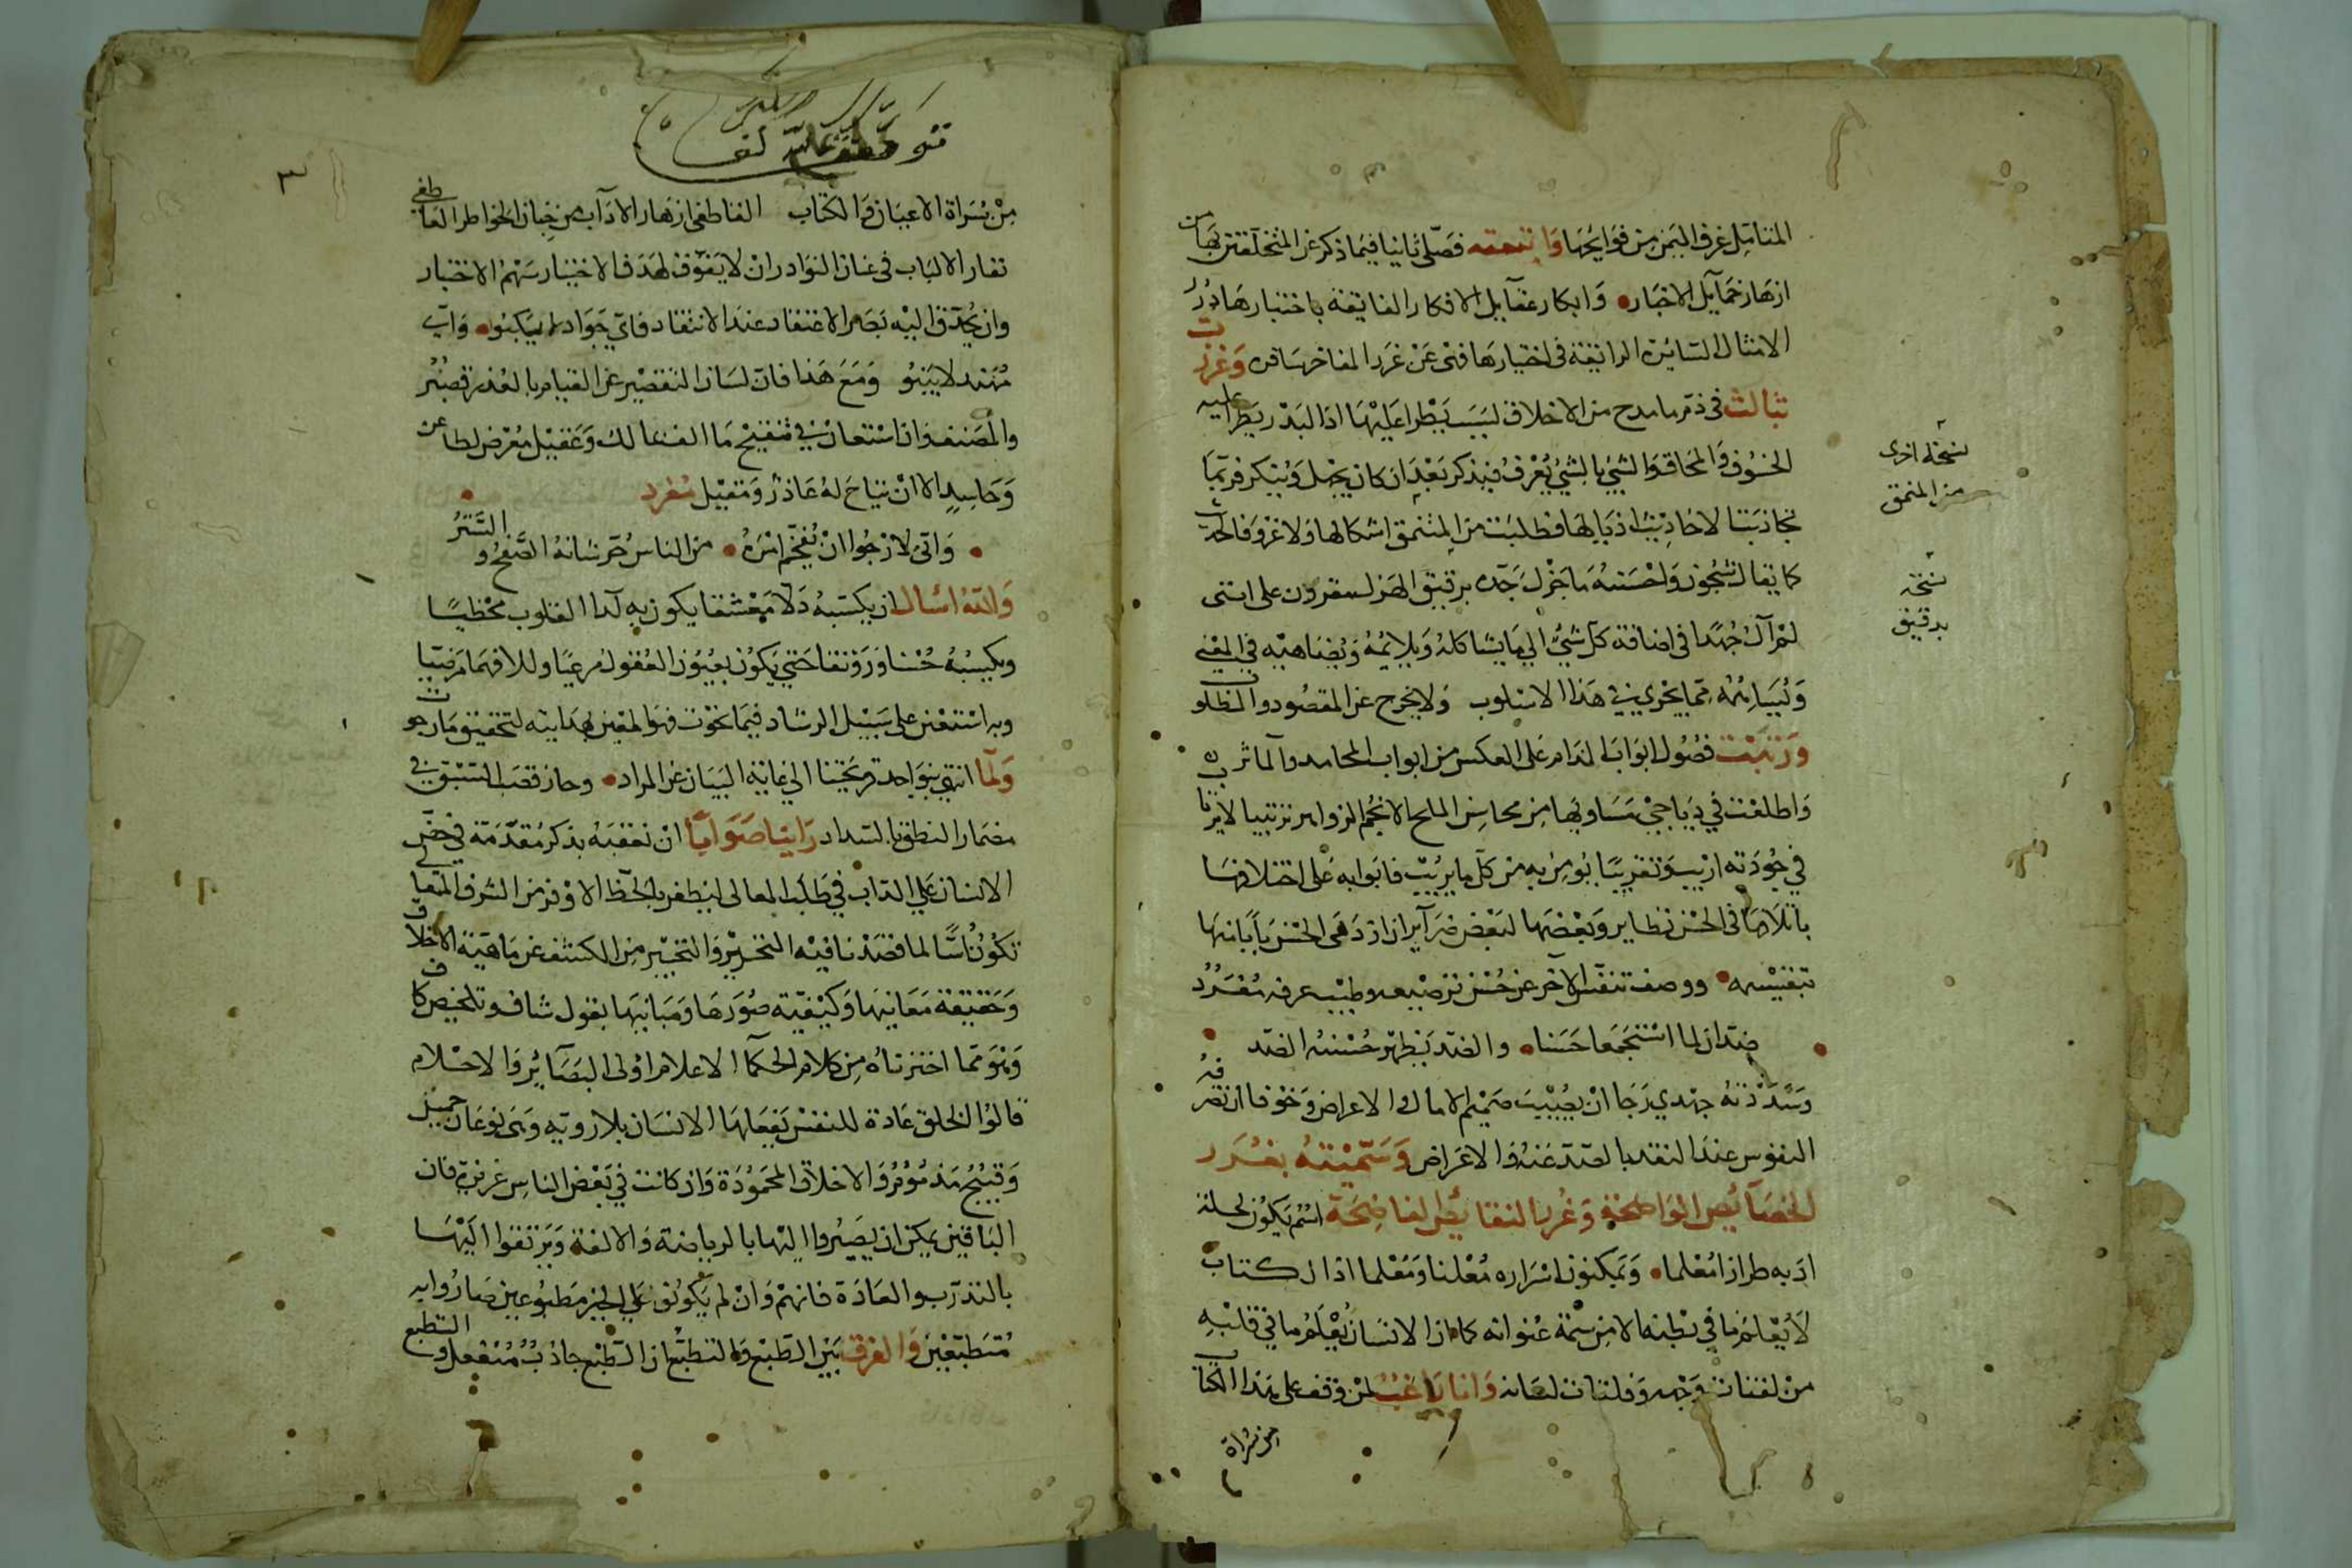 المتامل عرف اليمن من فوايحها واتبعته فصلا ثانيا فيما ذكر عن المتخلقين بها من
ازهار خمايل الاخبار وابكار عقايل الافكار الفايقة باختبارها درر
الامثال السائرة الرايقة في اختيارها فهي عن غرر المفاخر سافرة وعززت
بثالث في ذم ما مدح من الاخلاق لسبب يطرا عليها اذ البدر يطرا عليه
الخسوف والمحاق والشيء بالشيء يعرف فيذكر بعد ان كان يجهل وينكر فربما
تجاذبتنا لاحاديث اذيالها فطلبت من المتنمق اشكالها ولا غرو فالحديث
كما يقال شجون واحسنه ما جزل جده برقيق الهزل مقرون على انني
لم آل جهدا في اضافة كل شيء الى ما يشاكله ويلايمه ويضاهيه في المعنى
ويسايمه مما يجري في هذا الاسلوب ولا يخرج عن المقصود والمطلوب
ورتبت فصول ابواب المذام على العكس من ابواب المحامد والمآثر
واطلعت في دياجي مساويها من محاسن الملح الانجم الزواهر ترتيبا لا يرتاب
في جودته اريب وتقريبا يؤمن به من كل ما يريب فابوابه على اختلافها
بائتلافها في الحسن نظاير وبعضها لبعض ضراير ان ازدهى الحسن بابانها
بتفنيسه ووصف تنفس الآخر عن حسن ترصيعه وطيب عرفه مفرد
ضدان لما استجمعا حسنا والضد يظهر حسنه الضد
وسددته جهدي رجا ان يصيب صميم الامال والاغراض وخوفا ان تصرفه
النفوس عند النقد بالصد عنه والاعراض وسميته بغرر
الخصائص الواضحة وعرر النقائض الفاضحة اسم يكون لحلة
ادبه طرازا معلما ويمكنون اسراره معلنا ومعلما اذ الكتاب
لا يعلم ما في بطنه الا من سمة عنوانه كما ان الانسان يعلم ما في قلبه
من لفتات وجهه وفلتات لسانه وانا راغب لمن وقف على هذا الكتاب
من سراة
نسخة اخرى
من المنمق
نسخة
بدقيق
٣
من سراة الاعيان والكتاب القاطفي ازهار الآداب من جنان الخواطر العاطفي
نفار الالباب في عنان النوادر ان لا يفوق لهدف الاختيار سهم الاختبار
وان يحدق اليه بصر الاعتقاد عند الانتقاد فاي جواد لا يكبو واي
مهند لا ينبو ومع هذا فان لسان التقصير عن القيام بالعذر قصير
والمصنف وان استعان في تنقيح ما الف بمالك وعقيل معرض لطاعن
وحاسد الا ان يتاح له عاذر ومقيل مفرد
واني لارجوا ان يفخم امره من الناس حر شانه الصفح والستر
والله اسال ان يكسبه دلا معشقا يكون به لدا القلوب محظيا
ويكسبه حسنا ورونقا حتى يكون بعيون العقول مرعيا وللافهام رضيا
وبه استعنت على سبيل الرشاد فيما نحوت فهو المعين بهدايته لتحقيق ما رجوت
ولما انتهى بنو احد قريحتنا الى غاية البيان عن المراد وحاز قصب السبق في
مضمار النطق بالسداد راينا صوابا ان نعقبه بذكر مقدمة في حض
الانسان على الداب في طلب المعالى ليظفر بالحظ الاوفر من الشرف المتعالي
تكون اسا لما قصدنا فيه التحرير والتحبير من الكشف عن ماهية الاخلاق
وحقيقة معانيها وكيفية صورها ومبانيها بقول شاف وتلخيص كاف
وهو مما اخترناه من كلام الحكما الاعلام اولى البصائر والاحلام
قالوا الخلق عادة للنفس يفعلها الانسان بلا روية وهي نوعان جميل
وقبيح مذموم والاخلاق المحمودة وان كانت في بعض الناس غريزة فان
الباقين يمكن ان يصيروا اليها بالرياضة والالفة ويرتقوا اليها
بالتدرب والعادة فانهم وان لم يكونوا على الخير مطبوعين صاروا به
متطبعين والفرق بين الطبع والتطبع ان الطبع جاذب منفعل والتطبع